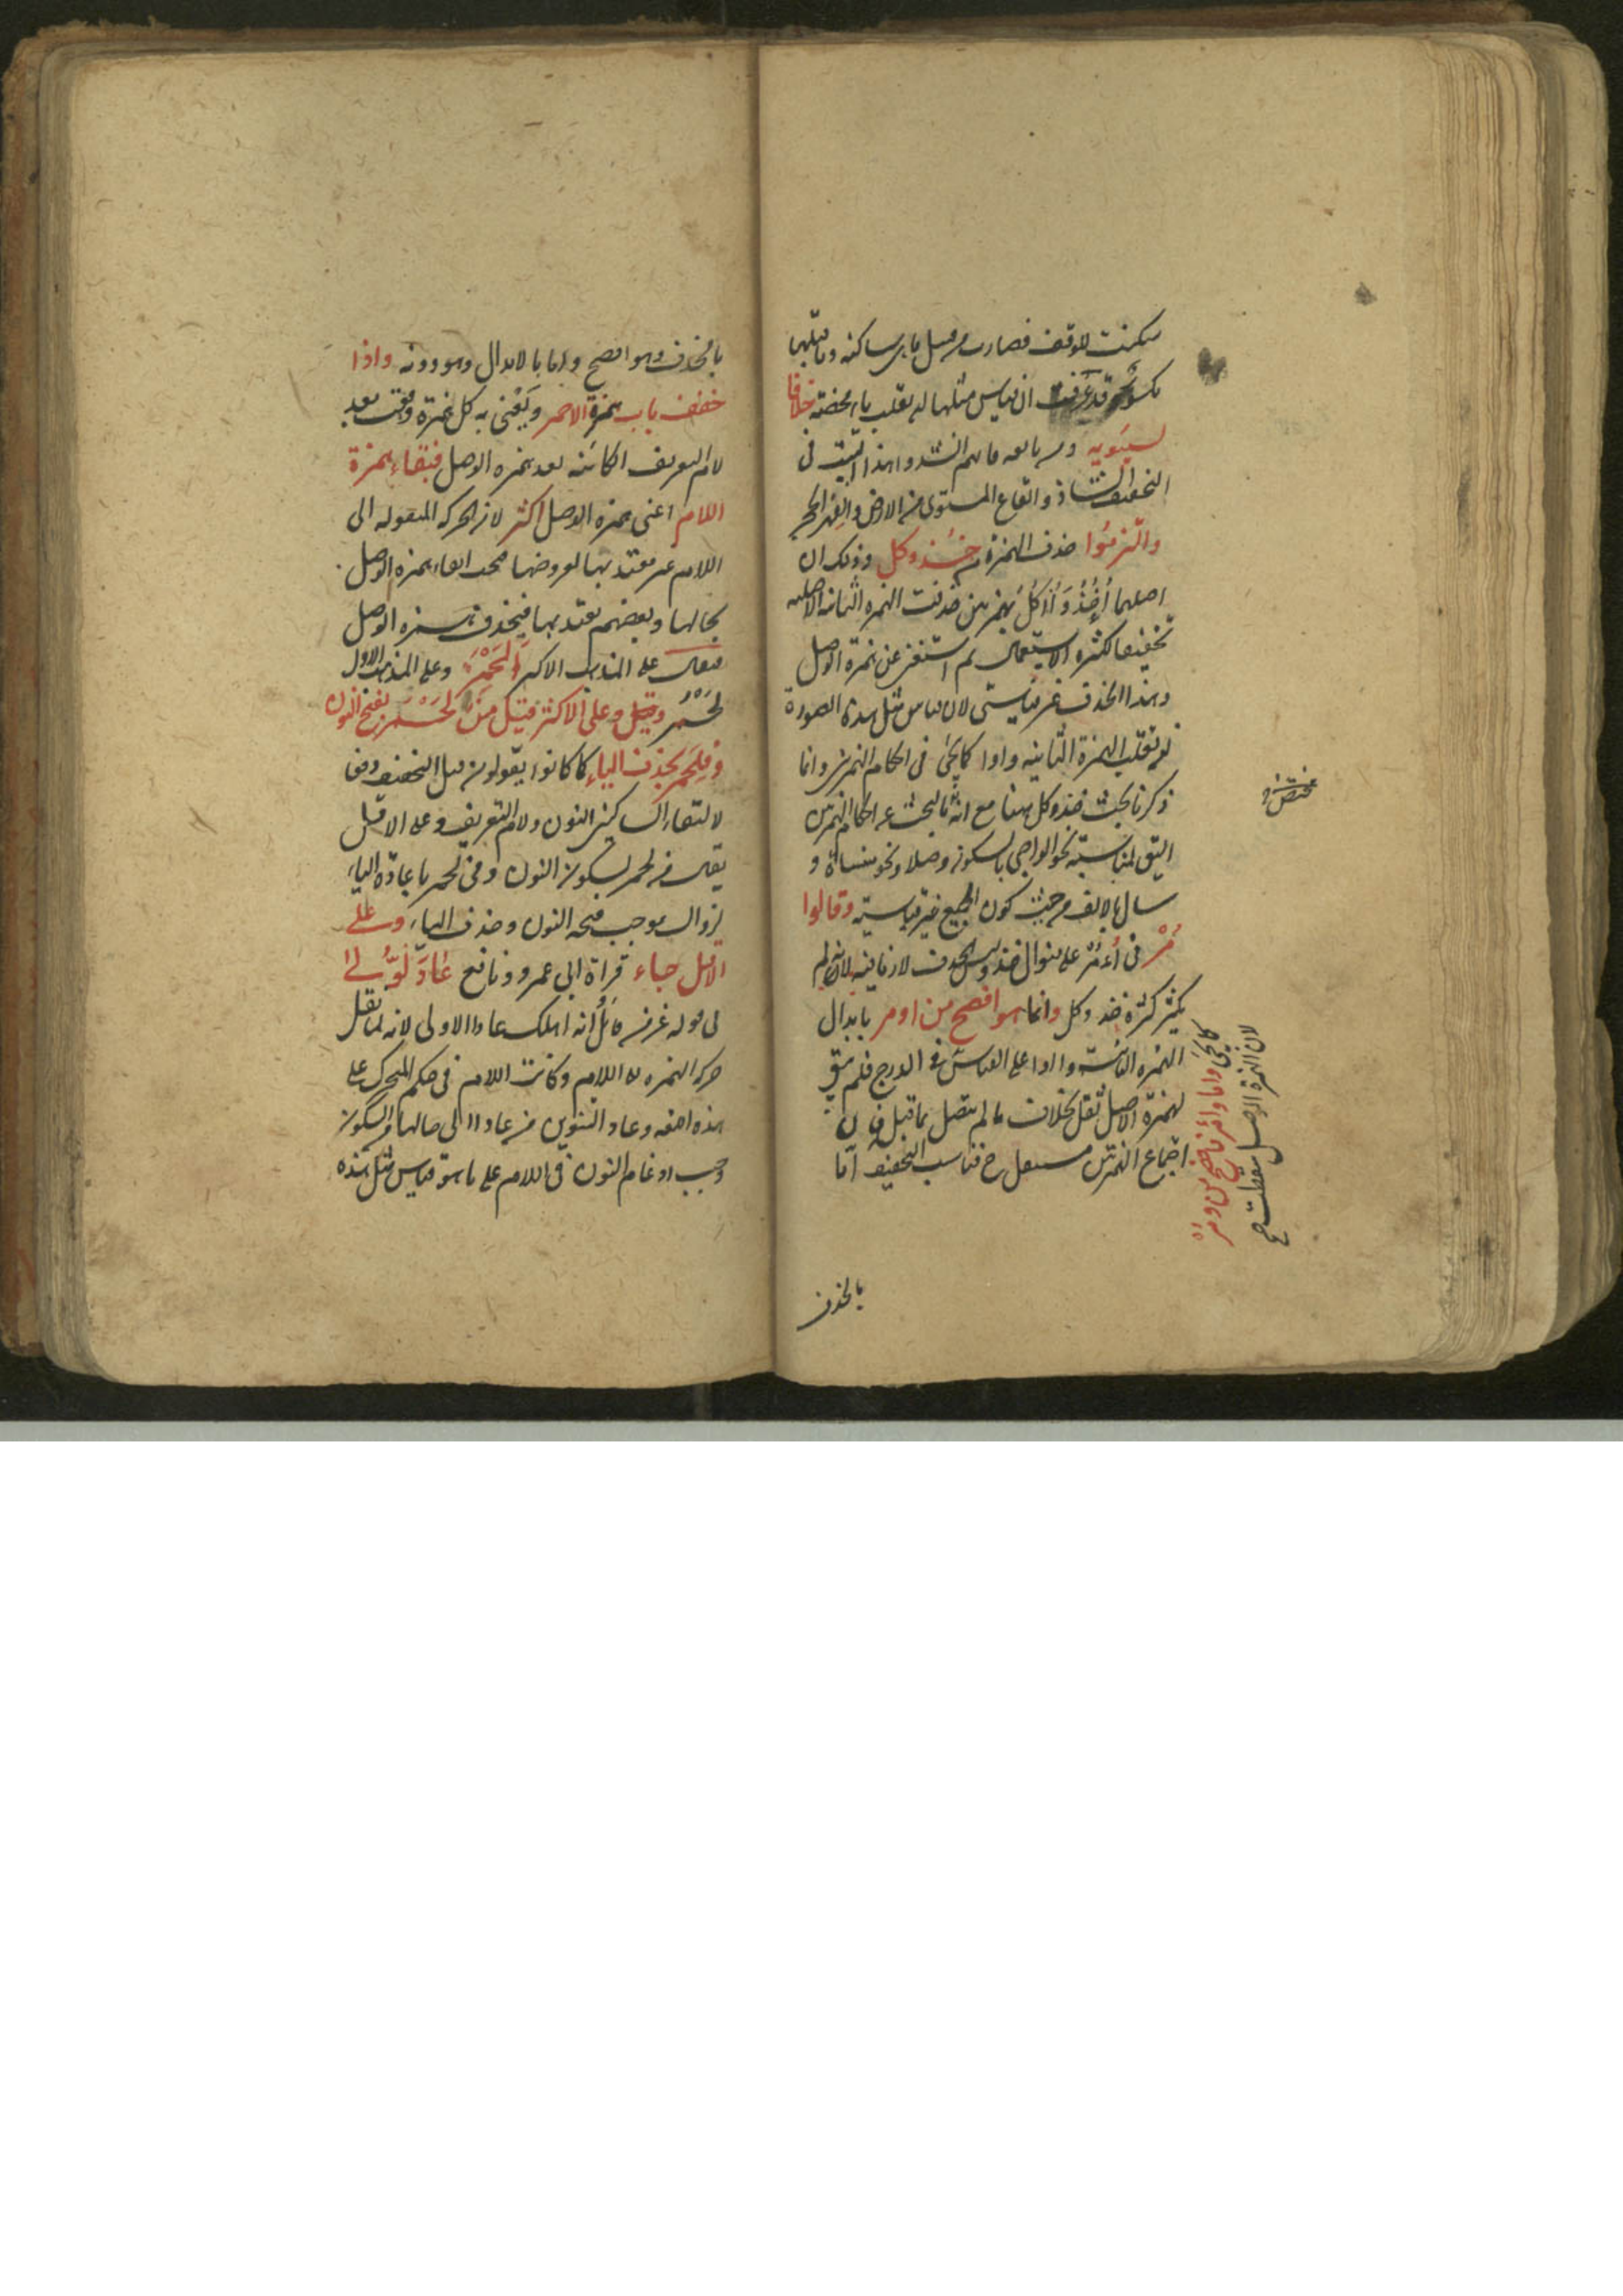 سكنت للوقف فصارت من قبيل ما هى ساكنه وما قبلها
مكسور قد عرفت ان قياس مثلها ان يقلب ياء محضة خلافا
لسيبويه
التخفيف الشاذ والقاع المستوى من الارض والفهر الحجر
والتزموا حذف الهمزة من خذ وكل وذلك ان
اصلهما أُءْخُذْ وَأُءْكُلْ بهمزتين حذفت الهمزه الثانيه الاصليه
تخفيفا لكثره الاستعمال ثم استغنى عن همزة الوصل
وهذا الحذف غير قياسى لان قياس مثل هذه الصورة
ان تقلب الهمزة الثانيه واوا كما يجئ فى احكام الهمزتين وانما
ذكرنا بحث خذ وكل ههنا مع انه بالبحث عن احكام الهمزتين
اليق لمناسبته نحو الواجى بالسكون وصلا ونحو منساة و
سال بالالف من حيث كون الجميع غير قياسية وقالوا
مُرْ فى أُءمُرْ على منوال خذ وليس الحذف لازما فيه لانه لم
يكثر كثرة خذ وكل وانما هو افصح من اومر بابدال
الهمزه الثانية واوا على القياس فى الدرج فلم يبق
لهمزة الاصل ثقل بخلاف ما لم يتصل بما قبل فان
اجتماع الهمزتين مستثقل ح فناسب التخفيف اما
كما يجئ واما وأمر فافصح من ومر
لان الهمزة الوصل سقطت
بالحذف
بالحذف وهو افصح واما بالابدال وهو دونه واذا
خفف باب همزة الاحمر ويعنى به كل همزة وقعت بعد
لام التعريف الكائنه بعد همزه الوصل فبقاء همزة
اللام اعنى همزه الوصل اكثر لان الحركه المنقوله الى
اللام غير معتد بها لعروضها فيجب ابقاء همزه الوصل
بحالها وبعضهم يعتد بها فيحذف همزه الوصل
فيقال على المذهب الاكثر اَلَحْمَر وعلى المذهب الاول
لَحْمَر وعلى الاكثر قيل مِنَ لَحْمَر بفتح النون
وفِلَحمر بحذف الياء كما كانوا يقولون قبل التخفيف دفعا
لالتقاء الساكنين النون ولام التعريف وعلى الاقل
يقال من لحمر بسكون النون وفى لحمر باعادة الياء
لزوال موجب فتحه النون وحذف الياء وعلى
الاقل جاء قراة ابى عمرو ونافع عَادَ لُّولى
فى قوله عز من قائل أنه اهلك عادا الاولى لانه لما نقل
حركه الهمزه الى اللام وكانت اللام فى حكم المتحرك على
هذه اللغه وعاد التنوين من عادا الى حالها من السكون
وجب ادغام النون فى اللام على ما هو قياس مثل هذه